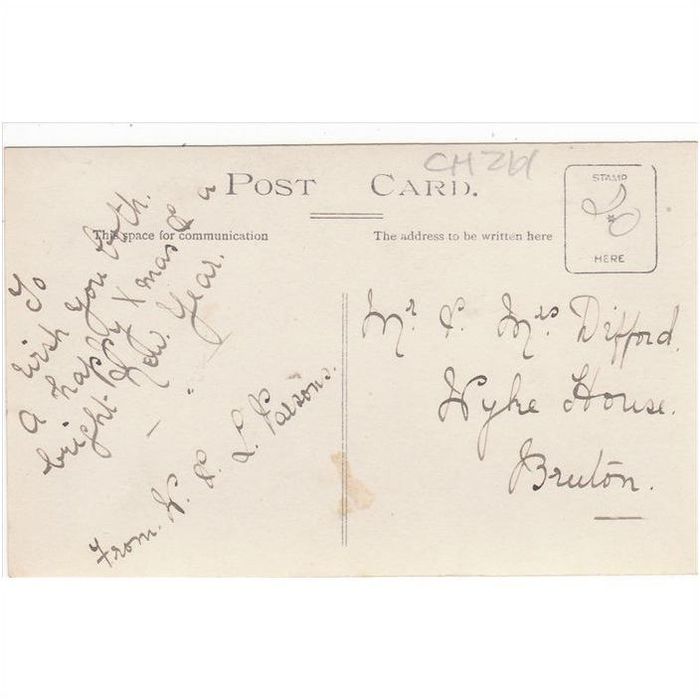 CH261
POST CARD.
This space for communication
The address to be written here
STAMP
HERE
To
wish you both.
A happy Xmas & a
bright New. Year.
From. W. & L. Parsons.
Mr & Mrs Difford.
Wyke House.
Bruton.